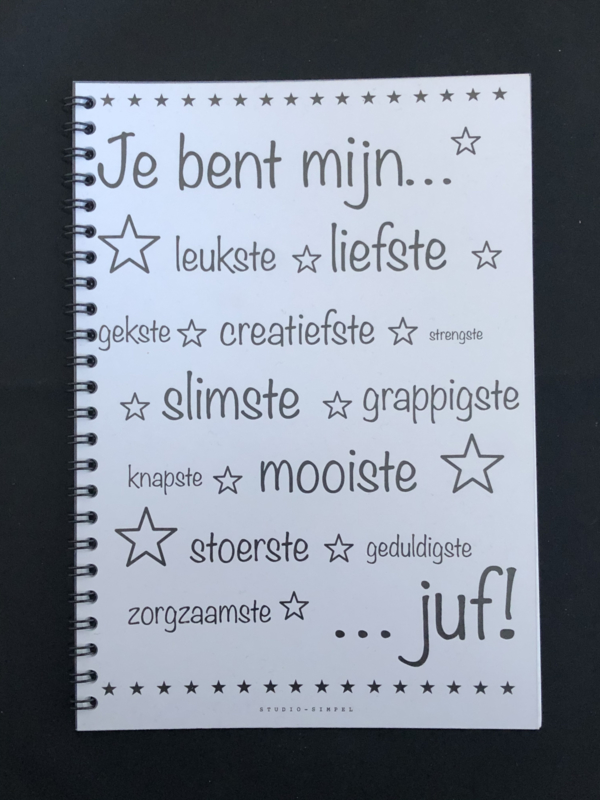 Je bent mijn...
leukste liefste
gekste creatiefste strengste
slimste grappigste
knapste mooiste
stoerste geduldigste
zorgzaamste ... juf!
STUDIO-SIMPEL